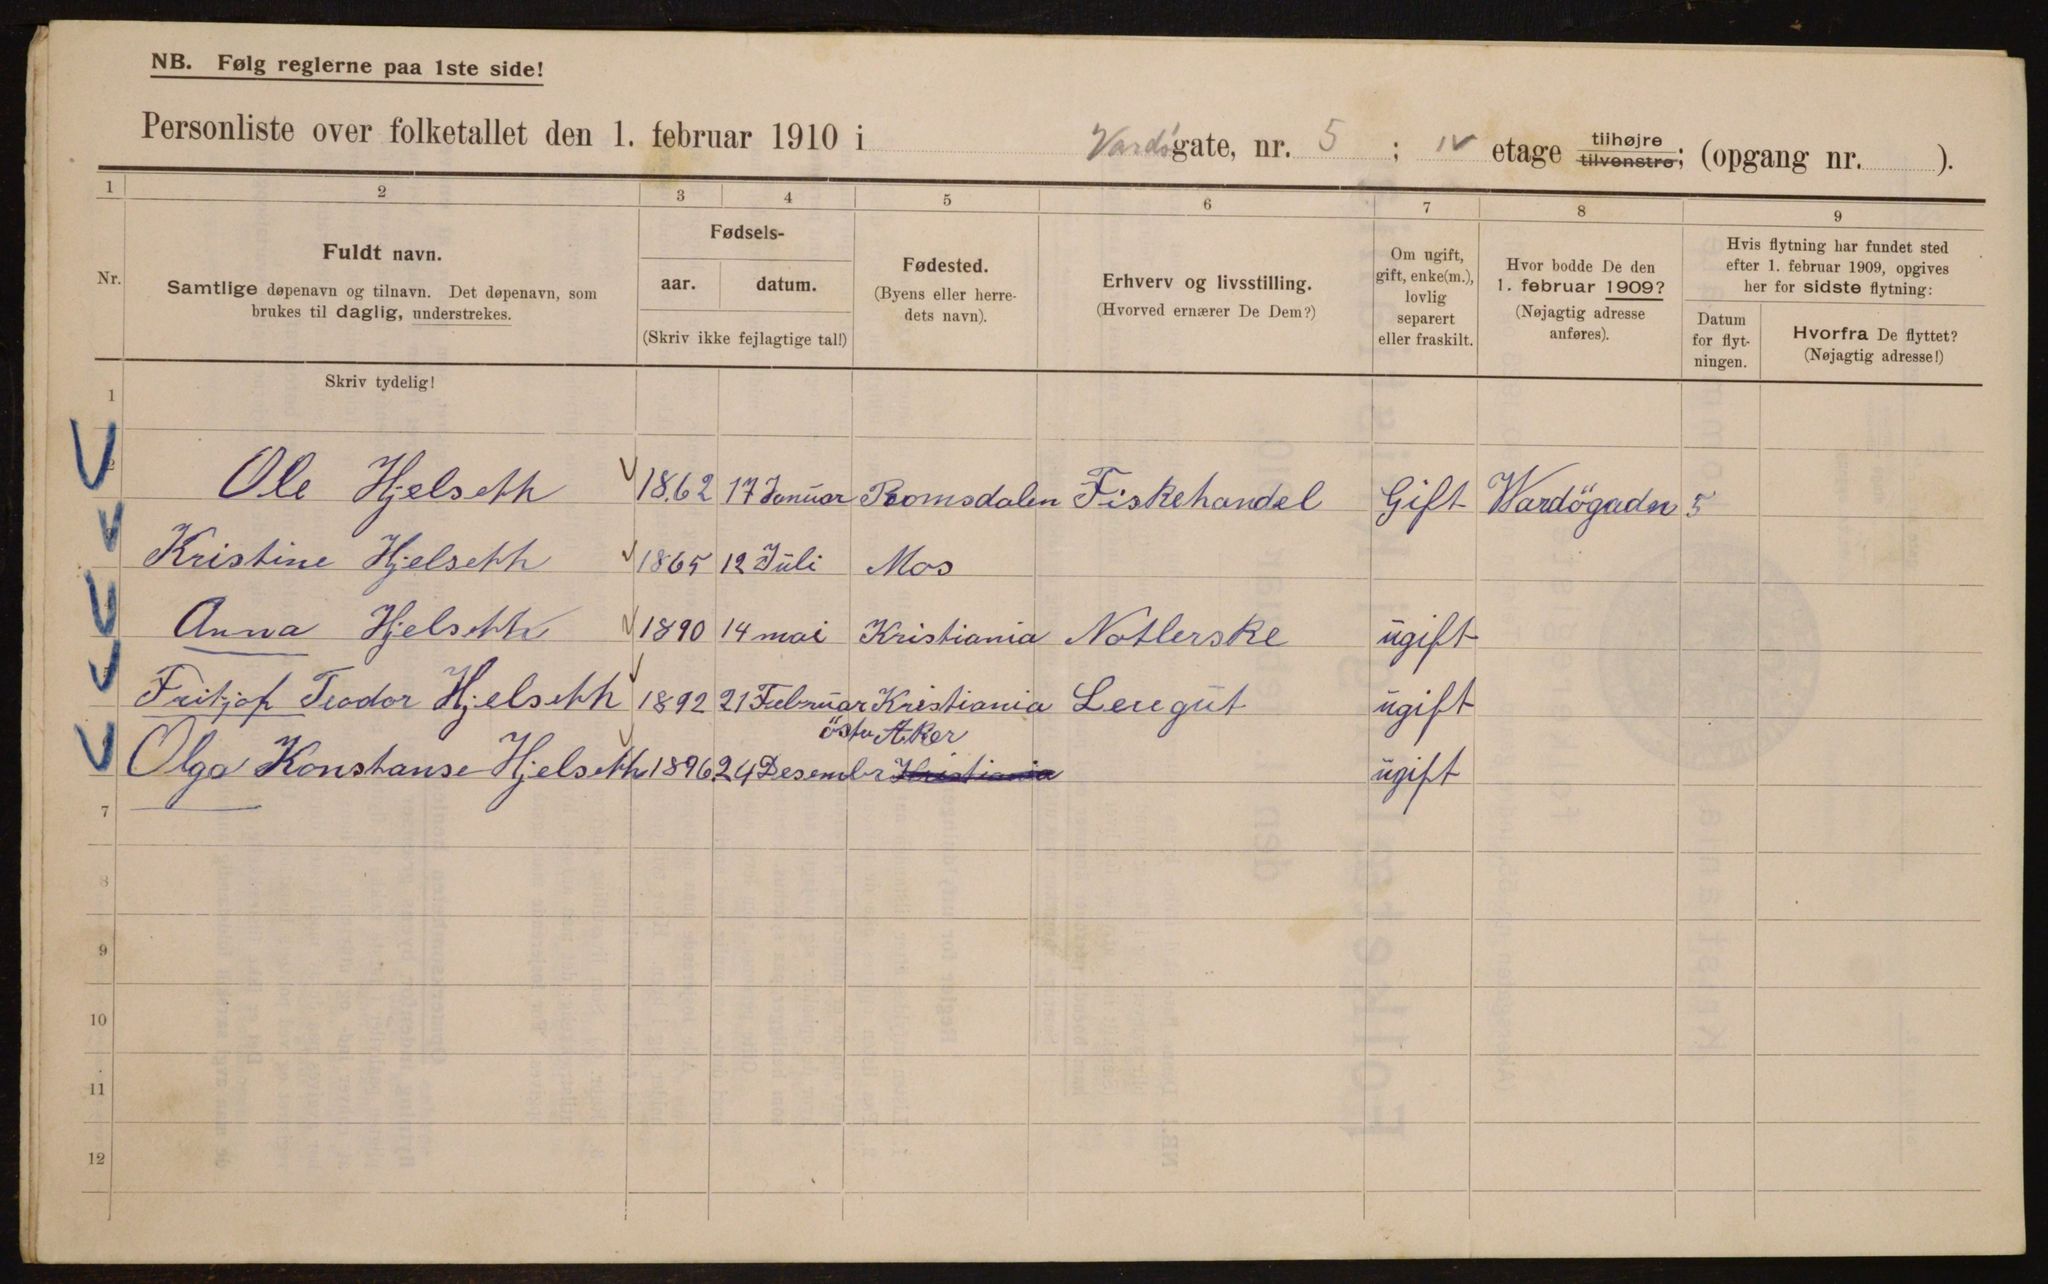 NB. Følg reglerne paa 1ste side!
Personliste over folketallet den 1. februar 1910 i Vardøgate, nr. 5 ; IV etage tilhøjre tilvenstre; (opgang nr. ).
1 2 3 4 5 6 7 8 9
Nr.
Fuldt navn.
Samtlige døpenavn og tilnavn. Det døpenavn, som
brukes til daglig, understrekes.
Fødsels-
aar. datum.
(Skriv ikke fejlagtige tal!)
Fødested.
(Byens eller herre-
dets navn).
Erhverv og livsstilling.
(Hvorved ernærer De Dem?)
Om ugift,
gift, enke(m.),
lovlig
separert
eller fraskilt.
Hvor bodde De den
1. februar 1909?
(Nøjagtig adresse
anføres).
Hvis flytning har fundet sted
efter 1. februar 1909, opgives
her for sidste flytning:
Datum
for flyt-
ningen.
Hvorfra De flyttet?
(Nøjagtig adresse!)
Skriv tydelig!
1
2 Ole Hjelseth 1862 17 Januar Romsdalen Fiskehandel Gift Wardögadn 5
Kristine Hjelseth 1865 12 Juli Mos
Anna Hjelseth 1890 14 mai Kristiania Notlerske ugift
Fritjof Teodor Hjelseth 1892 21 Februar Kristiania ugift
Aker
Olga Konstanse Hjelseth 1896 24 Desembr Kristiania ugift
7
8
9
10
11
12